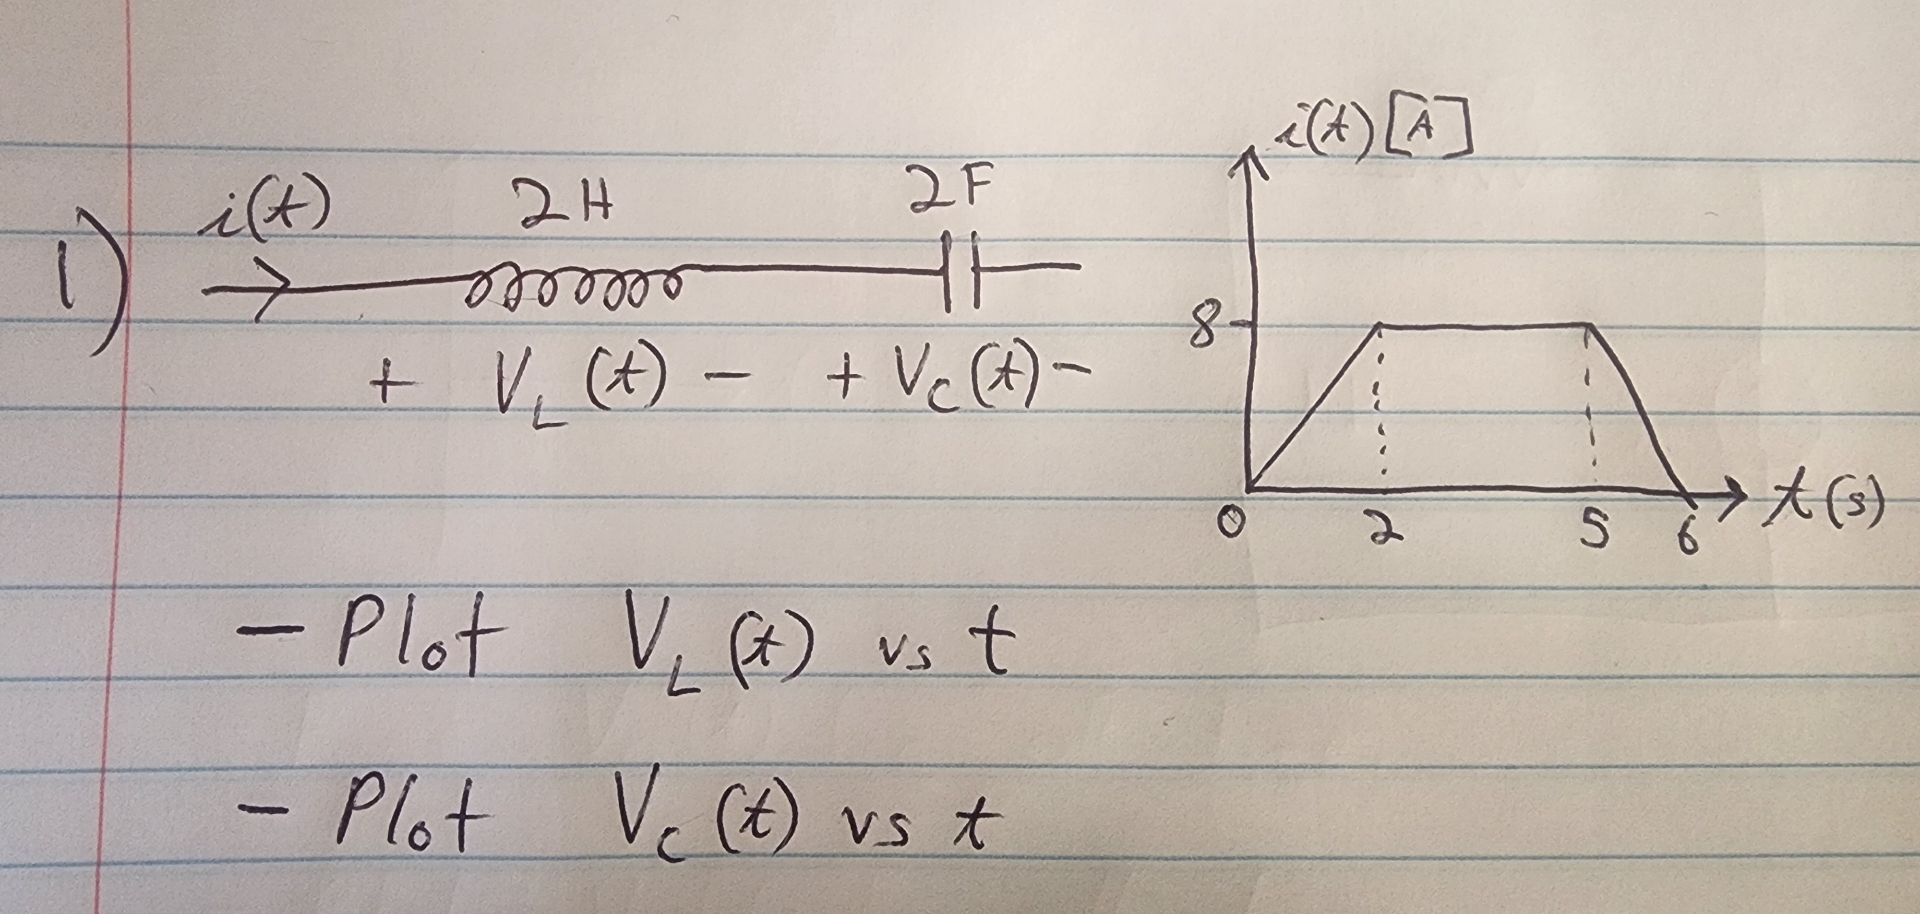 1)
i(t) 2H 2F
+ V_L (t) - + V_C (t) -
i(t) [A]
8
0 2 5 6 t(s)
- Plot V_L (t) vs t
- Plot V_C (t) vs t